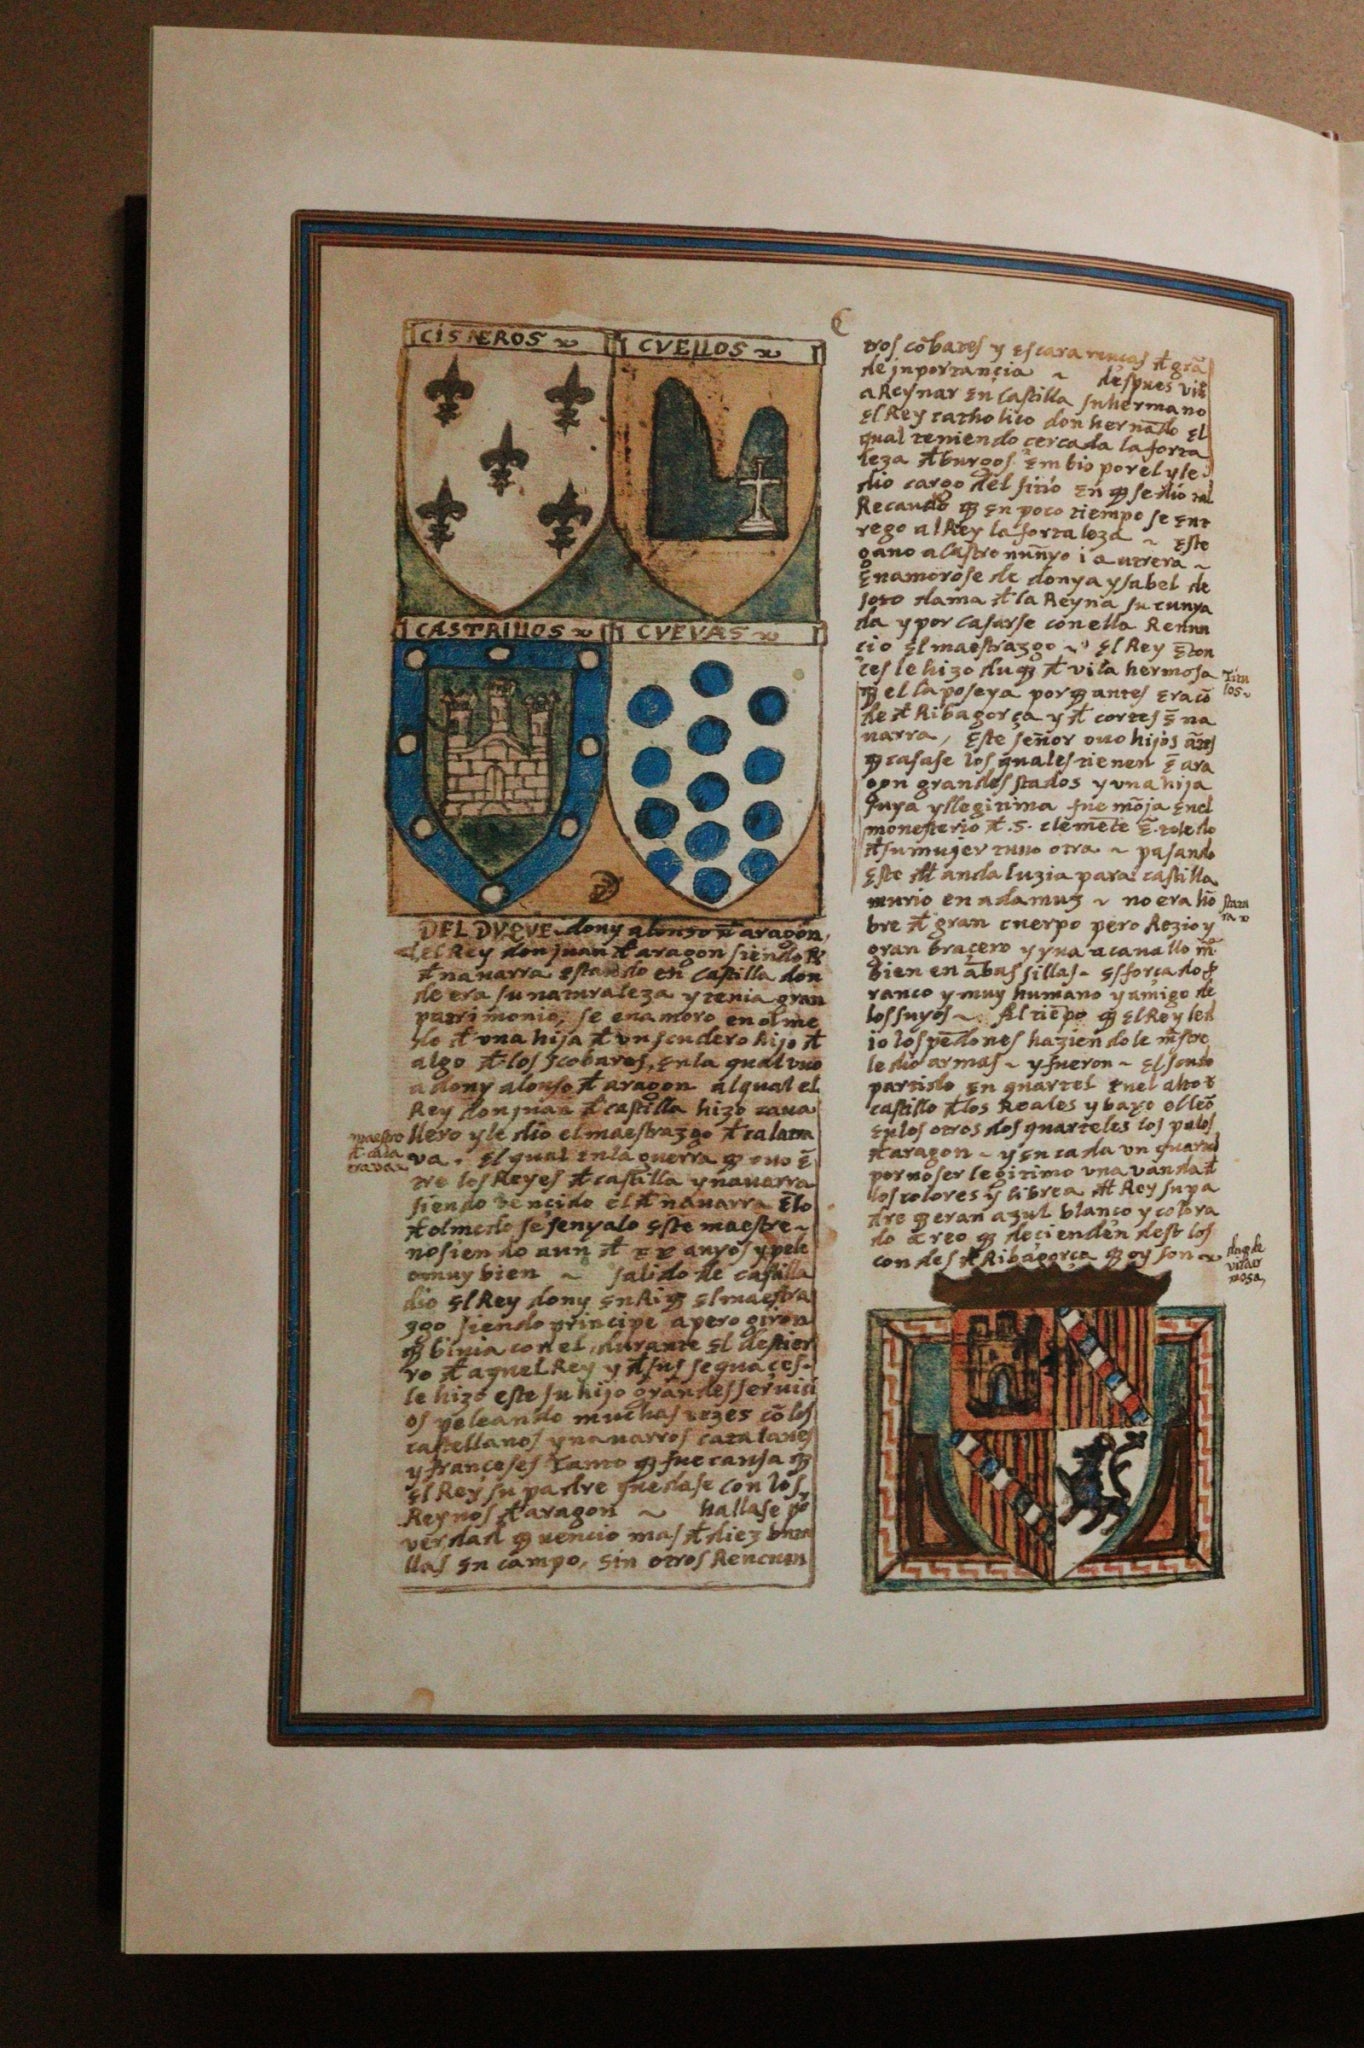 CISNEROS
CVELLOS
CASTRILLOS
CVEVAS
DEL DVQVE dony alonso đ aragon,
el Rey don juan đ aragon siendo
đ nauarra estando en castilla don
de era su naturaleza y tenia gran
patrimonio, se enamoro en olme
do đ una hija đ un scudero hijo đ
algo đ los scobares, en la qual uuo
a dony alonso đ aragon al qual el
Rey don juan đ castilla hizo caua
llero y le dio el maestrazgo đ calatra
maestro
đ cala
traua
va. El qual en la guerra q̃ ouo ẽ
tre los Reyes đ castilla y nauarra
siendo vencido el đ nauarra ẽ lo
đ olmedo se senyalo este maestre
no siendo aun đ xx anyos y pele
o muy bien ~ salido de castilla
dio el Rey dony enRiq̃ el maestra
zgo siendo principe a pero giron
q̃ biuia con el, durante el destier
ro đ aquel Rey y đ sus sequaçes
le hizo este su hijo grandes seruici
os peleando muchas vezes cõ los
castellanos y nauarros catalanes
y françeses tanto q̃ fue causa q̃
el Rey su padre quedase con los
Reynos đ aragon ~ hallase põ
verdad q̃ uencio mas đ diez bata
llas en campo, sin otros Rencuen
tros cõbates y escaramuças đ grã
de inportançia ~ despues viẽ
a Reynar en castilla su hermano
el Rey catholico don hernãdo el
qual teniendo cercada la forta
leza đ burgos embio por el y le
dio cargo del sitio en q̃ se dio tal
Recaudo q̃ en poco tiempo se ent
rego al Rey la fortaleza ~ este
gano a castronunyo i a utrera ~
enamorose de donya ysabel de
soto dama đ la Reyna su cunya
da y por casarse con ella Renun
cio el maestrazgo ~ el Rey enton
ces le hizo duq̃ đ villa hermosa
titu
los
q̃ el la poseya por q̃ antes era cõ
de đ Ribagorça y đ cortes ẽ na
uarra, este señor ouo hijos ãtes
q̃ casase los quales tienen ẽ ara
gon grandes stados y una hija
suya yllegitima fue mõja en el
monesterio đ .s. clemẽte ẽ toledo
đ su mujer tuuo otra ~ pasando
este đl andaluzia para castilla
murio en adamuz ~ no era hõ
statu
ra
bre đ gran cuerpo pero Rezio y
gran braçero y yua a cauallo m̃
bien en ãbas sillas ~ esforçado f
ranco y muy humano y amigo de
los suyos ~ Al tiẽpo q̃ el Rey le
io los pẽdones haziendole m̃stre
le dio armas ~ y fueron ~ el scudo
partido en quartel en el alto
castillo đ los Reales y baxo el leõ
en los otros dos quarteles los palos
đ aragon ~ y en cada un quartel
por no ser legitimo una vanda đ
los colores y librea đl Rey su pa
dre q̃ eran azul blanco y colora
do creo q̃ decienden dest los
condes đ Ribagorça q̃ oy son
duq̃ de
villaher
mosa,